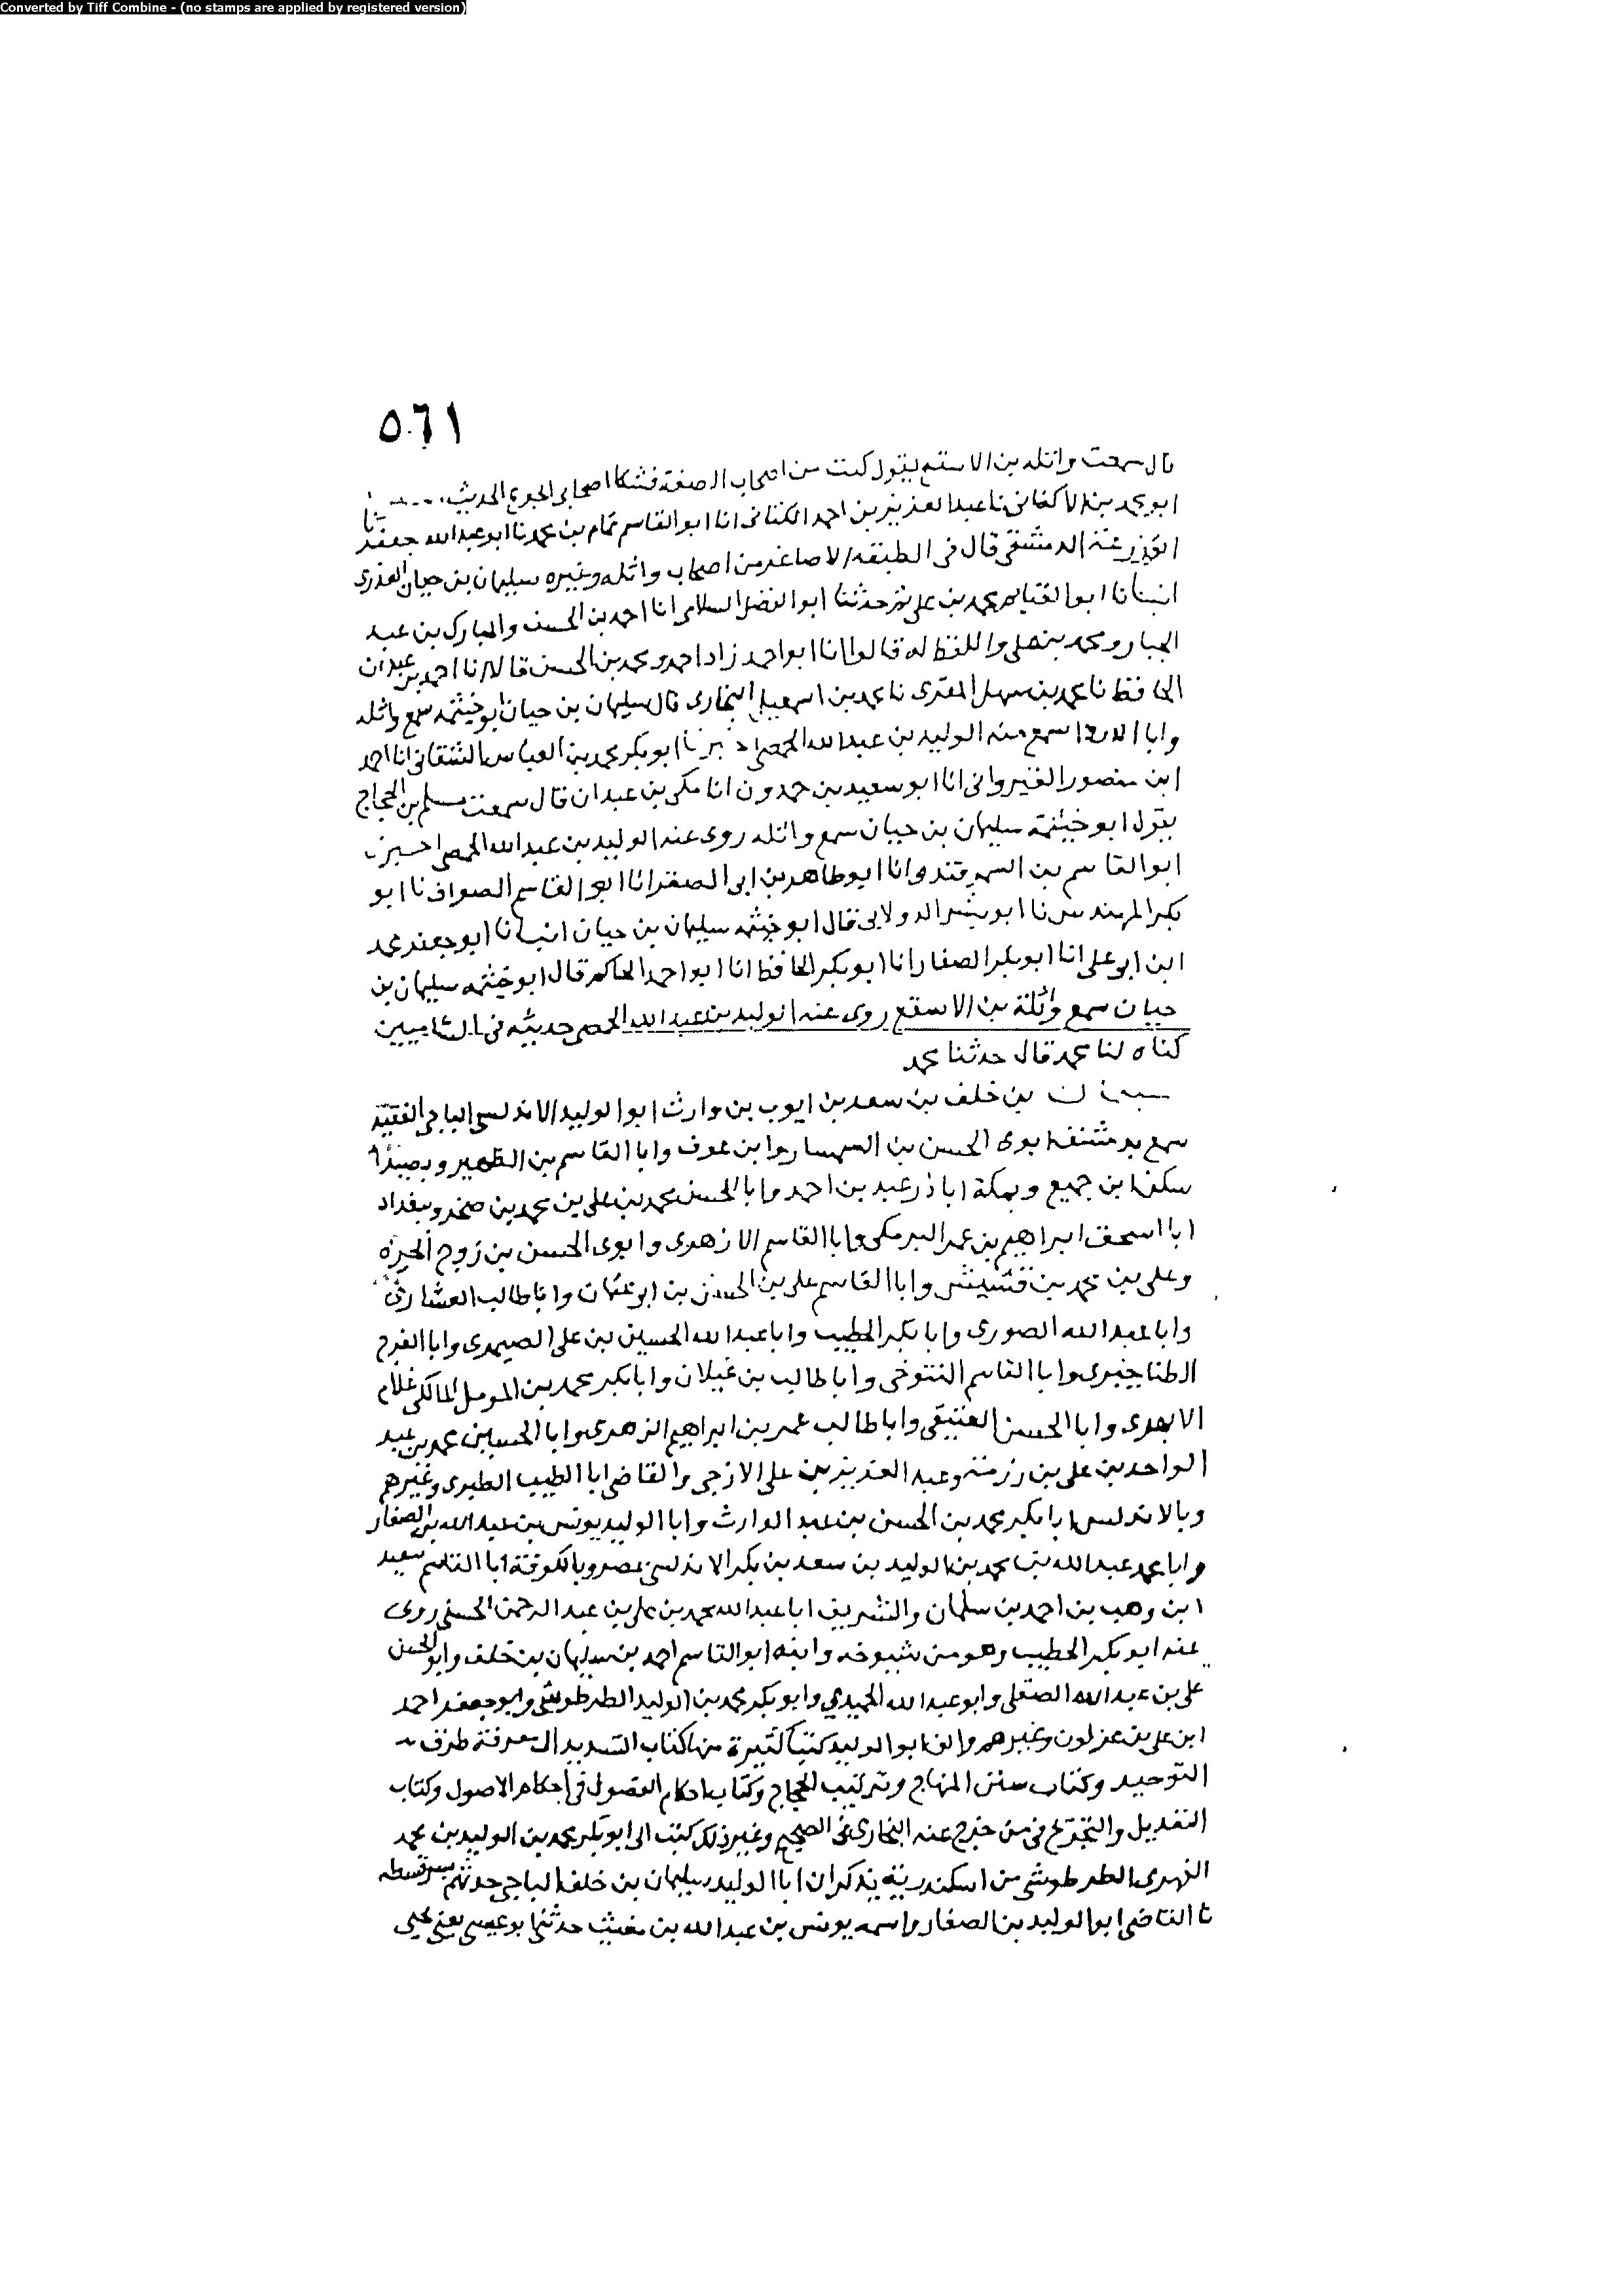 Converted by Tiff Combine - (no stamps are applied by registered version)
٥٦١
قال سمعت واثله بن الاسقع يقول كنت من اصحاب الصفة فشكا اصحابي الجوع الحديث
ابو محمد بن الاكفاني نا عبد العزيز بن احمد الكتاني انا ابو القاسم تمام بن محمد نا ابو عبد الله جعفر نا
ابو زرعة الدمشقي قال في الطبقه الاصاغر من اصحاب واثله وغيره سليمان بن حيان العذرى
انبانا ابو الغنايم محمد بن علي ثم حدثنا ابو الفضل السلامي انا احمد بن الحسن والمبارك بن عبد
الجبار ومحمد بن علي واللفظ له قالوا انا ابو احمد زاد احمد ومحمد بن الحسن قالا انا احمد بن عبدان
الحافظ نا محمد بن سهل المقرى نا محمد بن اسمعيل البخارى قال سليمان بن حيان ابو خيثمه سمع واثله
وابا الدردا سمع منه الوليد بن عبد الله الحمصي اخبرنا ابو بكر محمد بن العباس الشقاني انا احمد
ابن منصور القيرواني انا ابو سعيد بن حمدون انا مكي بن عبدان قال سمعت مسلم بن الحجاج
يقول ابو خيثمة سليمان بن حيان سمع واثله روى عنه الوليد بن عبد الله الحمصي اخبرنا
ابو القاسم بن السمرقندي وانا ابو طاهر بن ابي الصقر انا ابو القاسم الصواف نا ابو
بكر المهندس نا ابو بشر الدولابي قال ابو خيثمه سليمان بن حيان انبانا ابو جعفر محمد
ابن ابو علي انا ابو بكر الصفار انا ابو بكر الحافظ انا ابو احمد الحاكم قال ابو خيثمه سليمان بن
حيان سمع واثلة بن الاسقع روى عنه الوليد بن عبد الله الحمصي حديثه في الشاميين
كناه لنا محمد قال حدثنا محمد
سليمان بن خلف بن سعد بن ايوب بن وارث ابو الوليد الاندلسي الباجي الفقيه
سمع بدمشق ابوى الحسن بن السمسار وابن عوف وابا القاسم بن الطبير وبصيدا
سكن ابن جميع وبمكة ابا ذر عبد بن احمد وابا الحسن محمد بن علي بن محمد بن صخر وببغداد
ابا اسحق ابراهيم بن عمر البرمكي وابا القاسم الازهرى وابوى الحسن بن زوج الحرة
وعلي بن محمد بن قشيش وابا القاسم علي بن الحسن بن ابو عثمان وابا طالب العشارى
وابا عبد الله الصورى وابا بكر الخطيب وابا عبد الله الحسين بن علي الصيمرى وابا الفرج
الطناجيرى وابا القاسم التنوخي وابا طالب بن غيلان وابا بكر محمد بن المومل المالكي غلام
الابهرى وابا الحسن العتيقي وابا طالب عمر بن ابراهيم الزهرى وابا الحسين محمد بن عبد
الواحد بن علي بن رزمة وعبد العزيز بن علي الازجى والقاضي ابا الطيب الطبرى وغيرهم
وبالاندلس ابا بكر محمد بن الحسن بن عبد الوارث وابا الوليد يونس بن عبد الله بن الصفار
وابا محمد عبد الله بن محمد بن الوليد بن سعد بن بكر الاندلسي بمصر وبالكوفة ابا القاسم سعيد
ابن وهب بن احمد بن سلمان والشريف ابا عبد الله محمد بن علي بن عبد الرحمن الحسني روى
عنه ابو بكر الخطيب وهو من شيوخه وابنه ابو القاسم احمد بن سليمان بن خلف وابو الحسن
علي بن عبد الله الصقلي وابو عبد الله الحميدي وابو بكر محمد بن الوليد الطرطوشي وابو جعفر احمد
ابن علي بن عزلون وغيرهم والف ابو الوليد كتبا كثيرة منها كتاب التسديد الى معرفة طرف
التوحيد وكتاب سنن المنهاج وترتيب الحجاج وكتاب احكام الفصول في احكام الاصول وكتاب
التعديل والتجريح في من خرج عنه البخارى في الصحيح وغير ذلك كتب الي ابو بكر محمد بن الوليد بن محمد
الفهرى الطرطوشي من اسكندرية يذكر ان ابا الوليد سليمان بن خلف الباجي حدثهم بسرقسطه
نا القاضي ابو الوليد بن الصفار واسمه يونس بن عبد الله بن مغيث حدثني ابو عيسى يعني يحيى